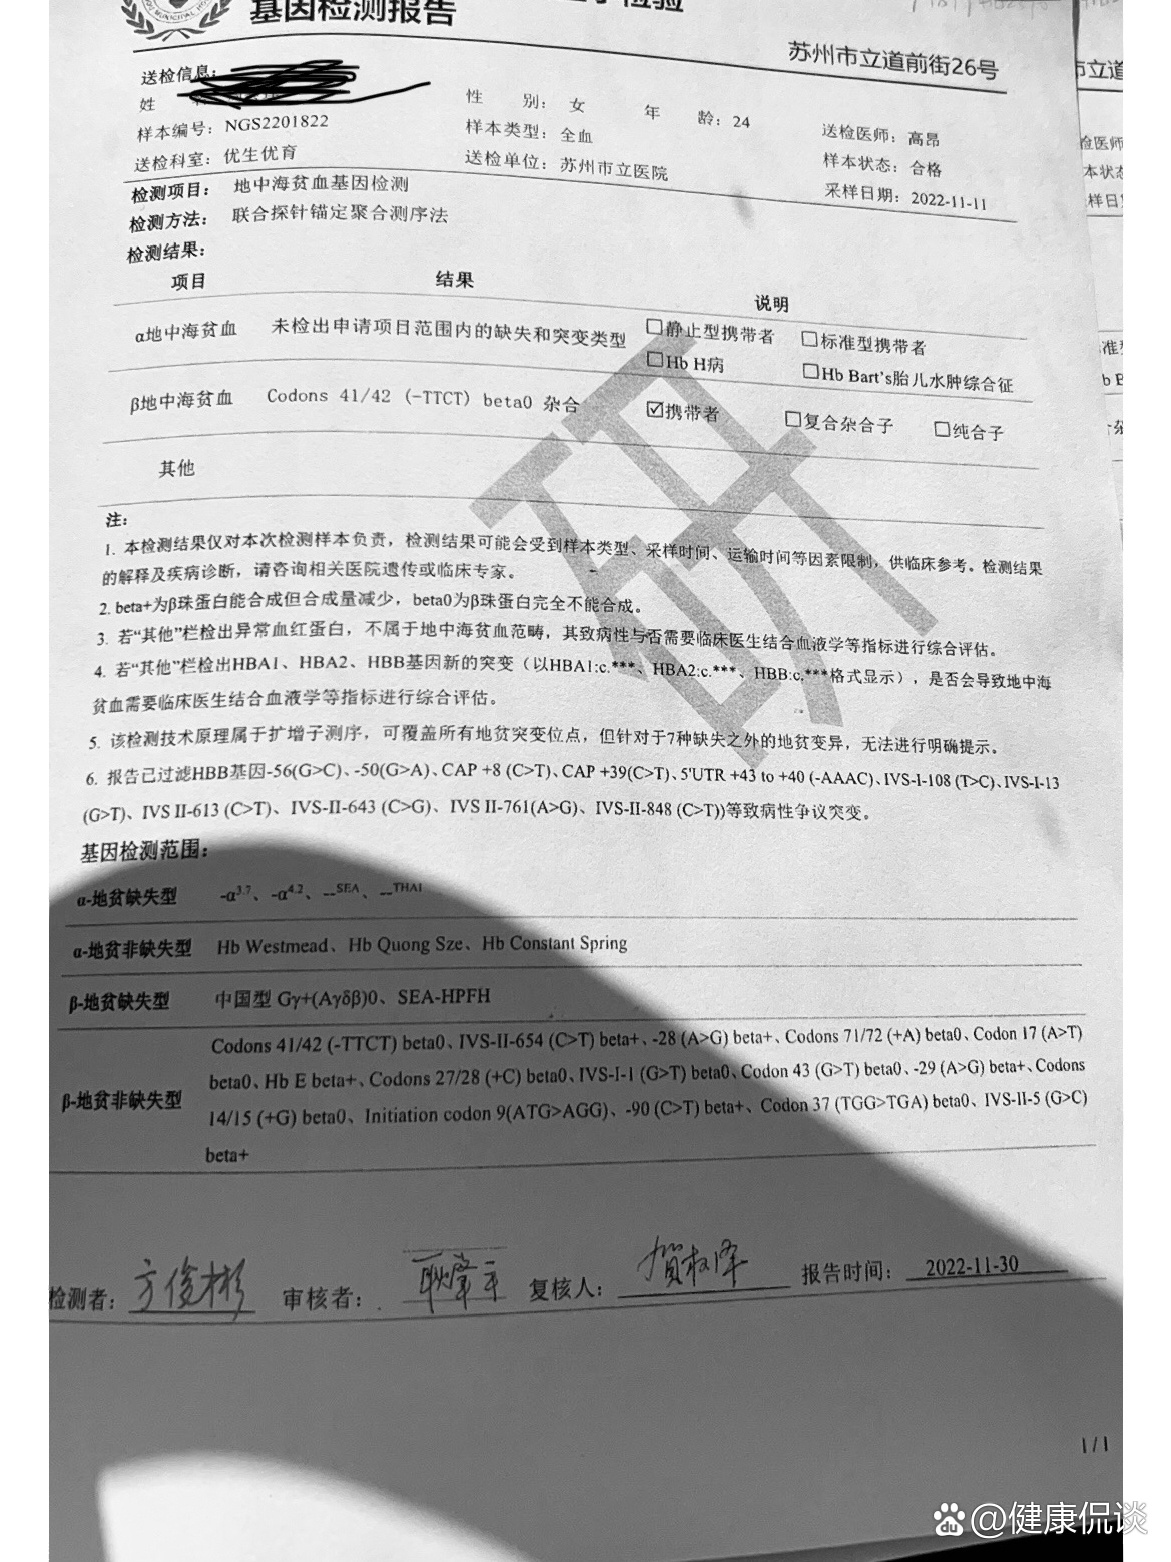 基因检测报告
苏州市立道前街26号
送检信息：
姓
性 别： 女 年 龄：24
样本编号：NGS2201822 样本类型：全血 送检医师：高昂
送检科室：优生优育 送检单位：苏州市立医院 样本状态：合格
检测项目： 地中海贫血基因检测 采样日期：2022-11-11
检测方法： 联合探针锚定聚合测序法
检测结果：
项目 结果 说明
α地中海贫血 未检出申请项目范围内的缺失和突变类型 □静止型携带者 □标准型携带者
□Hb H病 □Hb Bart's胎儿水肿综合征
β地中海贫血 Codons 41/42 (-TTCT) beta0 杂合 ☑携带者 □复合杂合子 □纯合子
其他
研
注：
1. 本检测结果仅对本次检测样本负责，检测结果可能会受到样本类型、采样时间、运输时间等因素限制，供临床参考。检测结果
的解释及疾病诊断，请咨询相关医院遗传或临床专家。
2. beta+为β珠蛋白能合成但合成量减少，beta0为β珠蛋白完全不能合成。
3. 若“其他”栏检出异常血红蛋白，不属于地中海贫血范畴，其致病性与否需要临床医生结合血液学等指标进行综合评估。
4. 若“其他”栏检出HBA1、HBA2、HBB基因新的突变（以HBA1:c.***、HBA2:c.***、HBB:c.***格式显示），是否会导致地中海
贫血需要临床医生结合血液学等指标进行综合评估。
5. 该检测技术原理属于扩增子测序，可覆盖所有地贫突变位点，但针对于7种缺失之外的地贫变异，无法进行明确提示。
6. 报告已过滤HBB基因-56(G>C)、-50(G>A)、CAP +8 (C>T)、CAP +39(C>T)、5'UTR +43 to +40 (-AAAC)、IVS-I-108 (T>C)、IVS-I-13
(G>T)、IVS II-613 (C>T)、IVS-II-643 (C>G)、IVS II-761(A>G)、IVS-II-848 (C>T))等致病性争议突变。
基因检测范围：
α-地贫缺失型 -α3.7、-α4.2、--SEA、--THAI
α-地贫非缺失型 Hb Westmead、Hb Quong Sze、Hb Constant Spring
β-地贫缺失型 中国型 Gγ+(Aγδβ)0、SEA-HPFH
Codons 41/42 (-TTCT) beta0、IVS-II-654 (C>T) beta+、-28 (A>G) beta+、Codons 71/72 (+A) beta0、Codon 17 (A>T)
β-地贫非缺失型 beta0、Hb E beta+、Codons 27/28 (+C) beta0、IVS-I-1 (G>T) beta0、Codon 43 (G>T) beta0、-29 (A>G) beta+、Codons
14/15 (+G) beta0、Initiation codon 9(ATG>AGG)、-90 (C>T) beta+、Codon 37 (TGG>TGA) beta0、IVS-II-5 (G>C)
beta+
检测者：方俊彬 审核者： 复核人： 报告时间： 2022-11-30
1/1
@健康侃谈